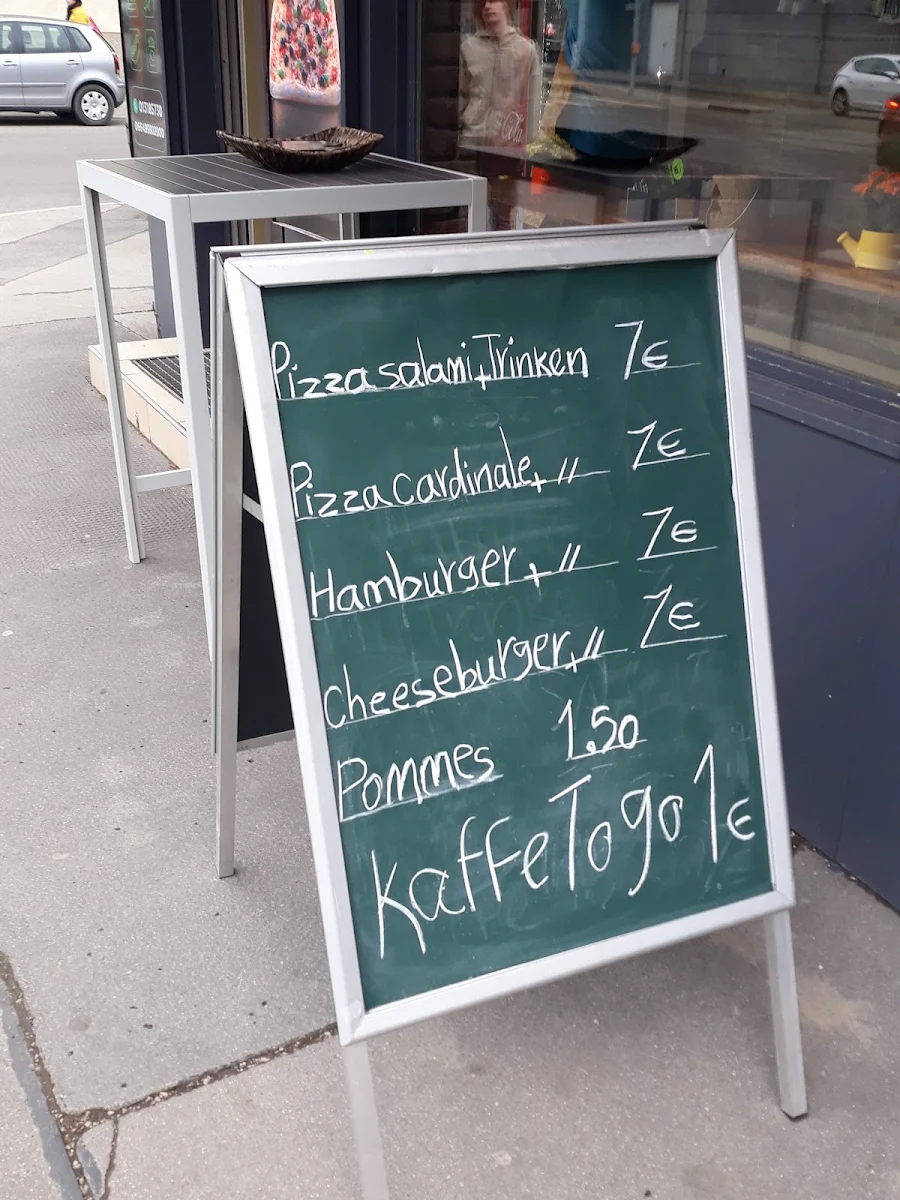 Pizza salami + Trinken 7€
Pizza Cardinale +〃 7€
Hamburger + 〃 7€
Cheeseburger + 〃 7€
Pommes 1.50
Kaffe To go 1€